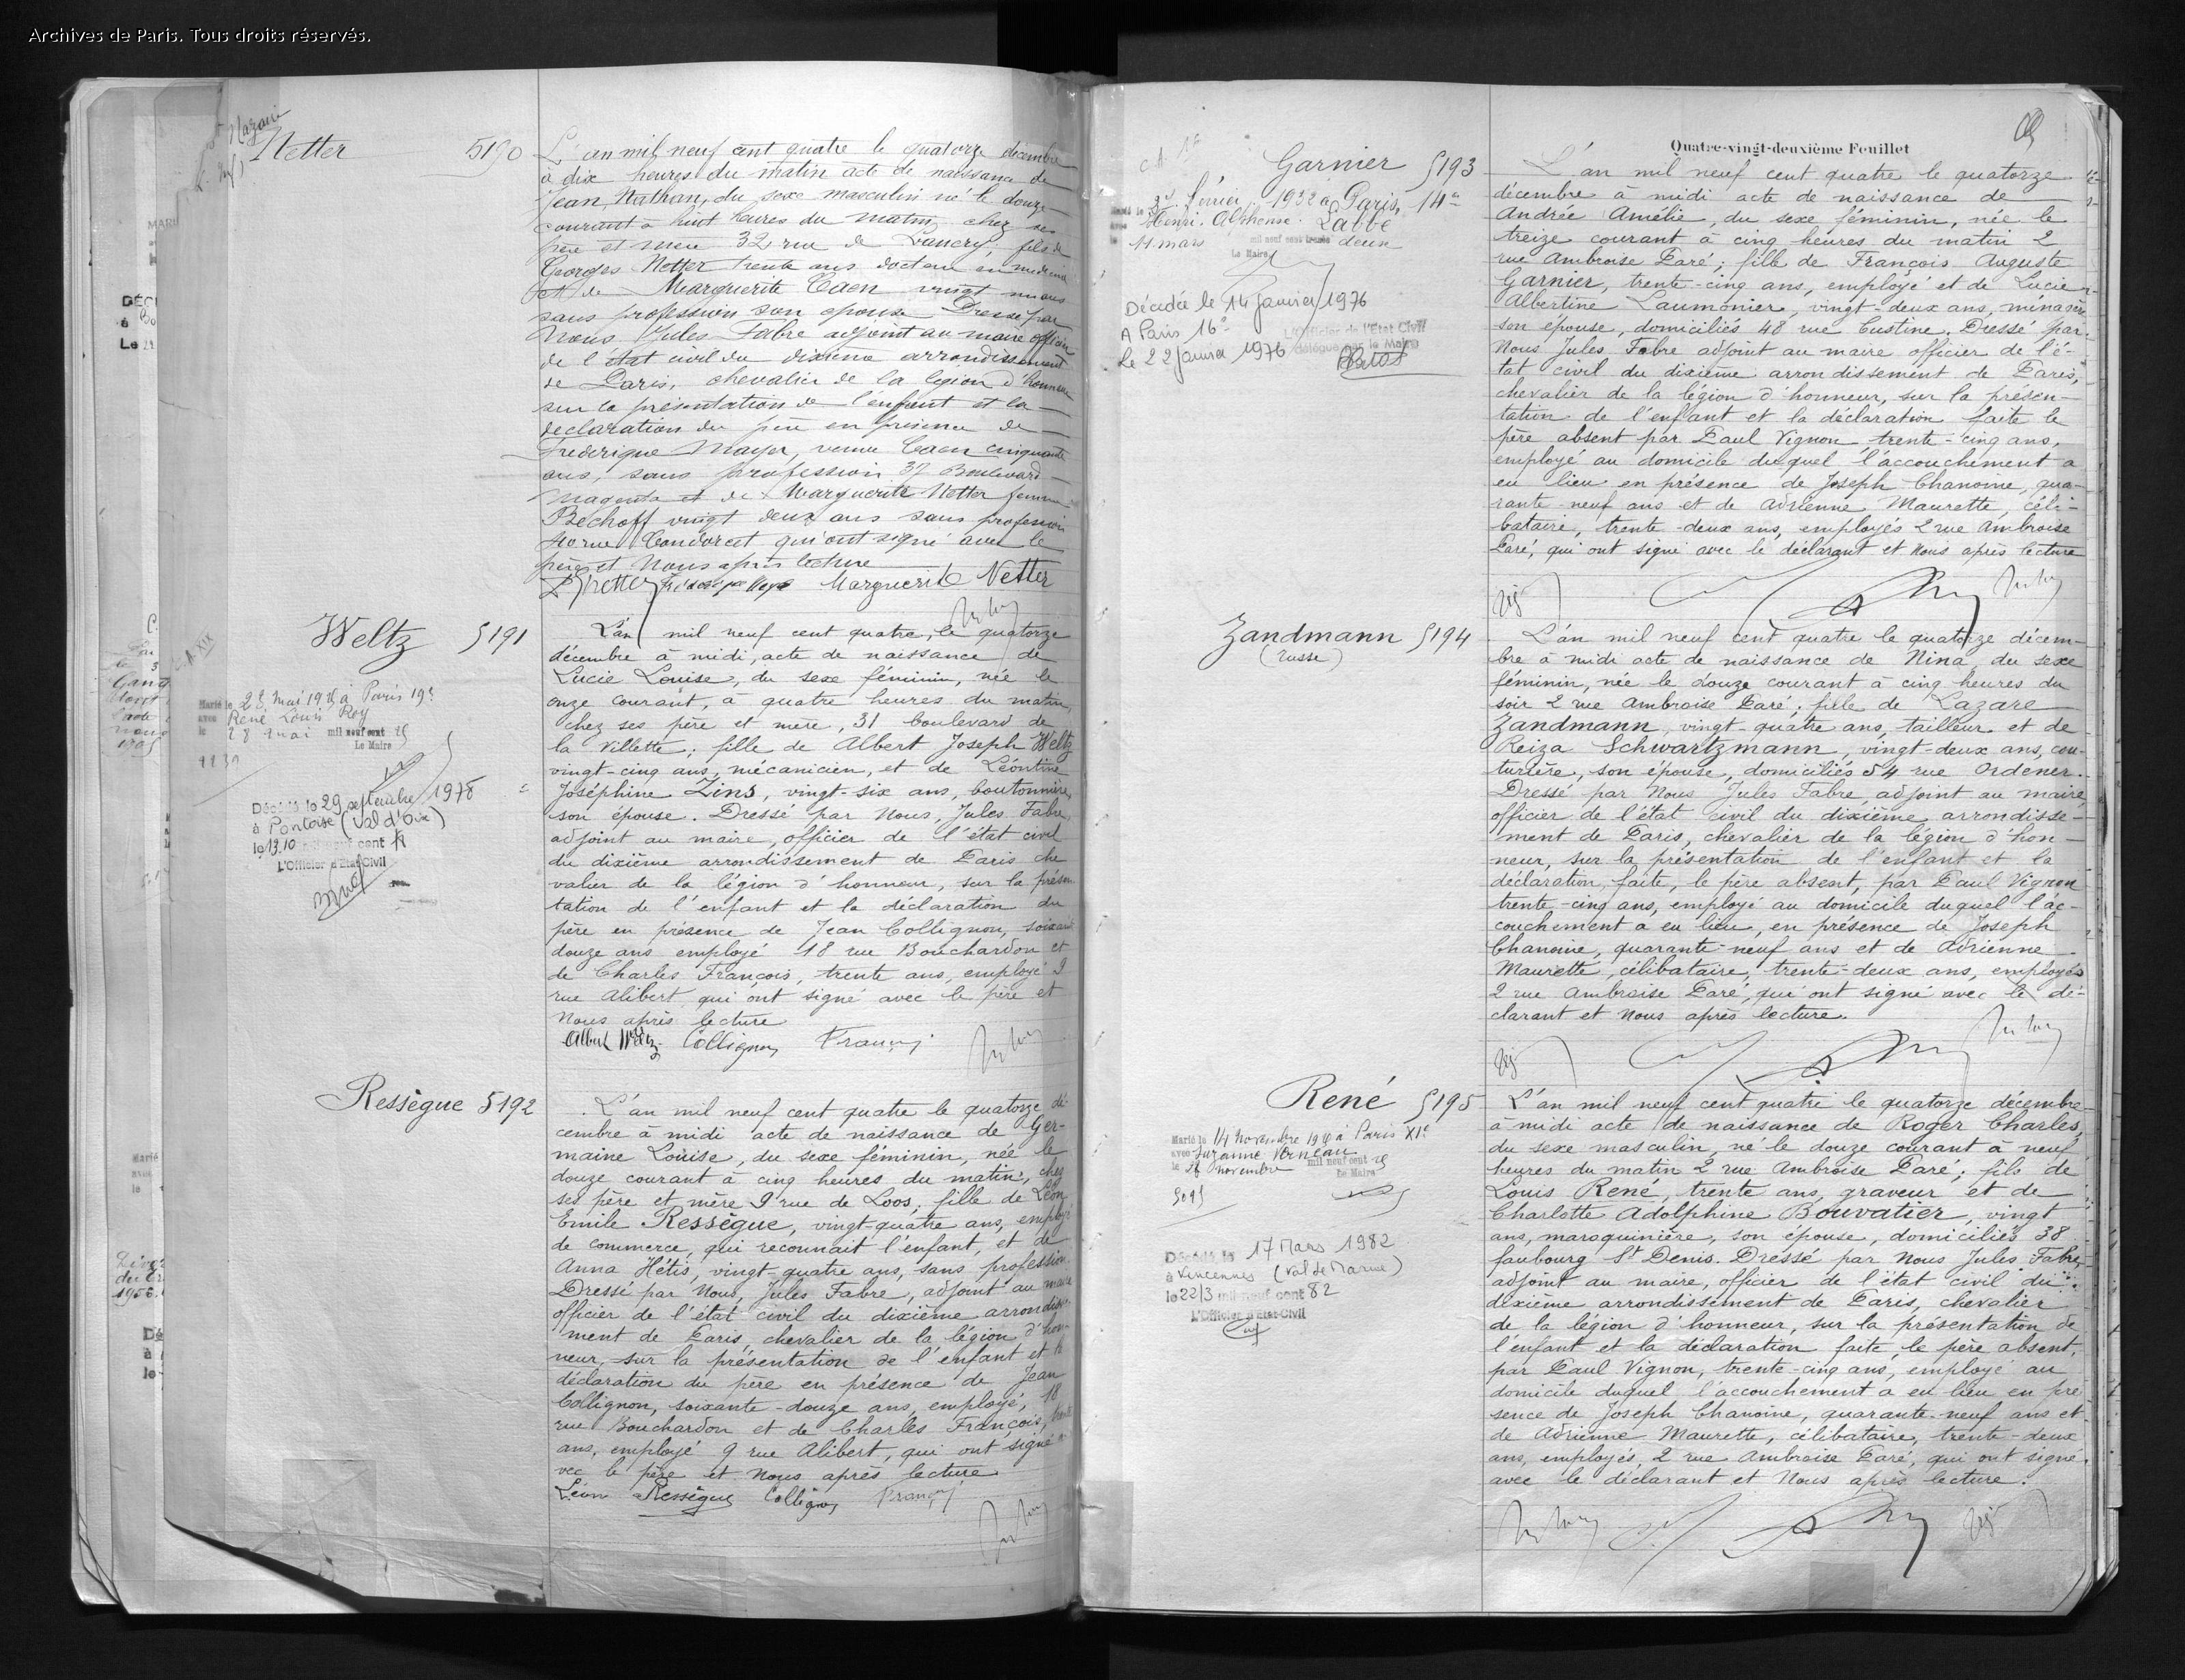 Archives de Paris. Tous droits réservés.
Netter 5190
L'an mil neuf cent quatre le quatorze décembre
à dix heures du matin acte de naissance de
Jean, Nathan, du sexe masculin né le douze
courant à huit heures du matin, chez ses
père et mère 32 rue de Lancry; fils de
Georges Netter trente ans docteur en médecine
et de Marguerite Caen vingt un ans
sans profession son épouse Dressé par
Nous Jules Fabre adjoint au maire officier
de l'état civil du dixième arrondissement
de Paris, chevalier de la légion d'honneur
sur la présentation de l'enfant et la
declaration du père en présence de
Frédérique Mayer, veuve Caen cinquante
ans, sans profession 37 Boulevard
magenta et de Marguerite Netter femme
Bechoff vingt deux ans sans profession
rue Condorcet qui ont signé avec le
père et Nous après lecture
Marguerite Netter
Weltz 5191
Marié le 23 mai 19 à Paris 19e
avec René Louis Roy
le 28 mai mil neuf cent 25
Le Maire
Décédé le 29 septembre 1978
à Pontoise (Val d'Oise)
le 13.10 cent
L'Officier d'Etat-Civil
L'an mil neuf cent quatre, le quatorze
décembre à midi, acte de naissance de
Lucie Louise, du sexe féminin, née le
onze courant, à quatre heures du matin,
chez ses père et mère, 31 boulevard de
la Villette; fille de Albert Joseph Weltz
vingt-cinq ans, mécanicien, et de Léontine
Joséphine Zins, vingt-six ans, boutonnière,
son épouse. Dressé par Nous, Jules Fabre,
adjoint au maire, officier de l'état civil
du dixième arrondissement de Paris che
valier de la légion d'honneur, sur la présen
tation de l'enfant et la déclaration du
père en présence de Jean Collignon, soixante
douze ans employé 18 rue Bouchardon et
de Charles François, trente ans, employé 9
rue Alibert, qui ont signé avec le père et
Nous après lecture
Albert Weltz Collignon François
Ressègue 5192
L'an mil neuf cent quatre le quatorze dé
cembre à midi acte de naissance de Ger-
maine Louise, du sexe féminin, née le
douze courant à cinq heures du matin, chez
ses père et mère 9 rue de Loos, fille de Léon
Emile Ressègue, vingt-quatre ans, employé
de commerce, qui reconnait l'enfant, et de
Anna Hétis, vingt-quatre ans, sans profession.
Dressé par Nous, Jules Fabre, adjoint au maire
officier de l'état civil du dixième arrondisse
ment de Paris, chevalier de la légion d'hon-
neur, sur la présentation de l'enfant et la
déclaration du père en présence de Jean
Collignon, soixante-douze ans, employé, 18
rue Bouchardon et de Charles François, trente
ans, employé 9 rue Alibert, qui ont signé a
vec le père et Nous après lecture
Léon Ressègue Collignon François
Quatre-vingt-deuxième Feuillet
Garnier 5193
février 1932 à Paris, 14e
Henri Alphonse Labbé
11 mars mil neuf cent trente deux
Le Maire
Décédée le 14 janvier 1976
A Paris 16e
Le 22 janvier 1976
L'Officier de l'Etat Civil
délégué par le Maire
L'an mil neuf cent quatre le quatorze
décembre à midi acte de naissance de
Andrée Amélie, du sexe féminin, née le
treize courant à cinq heures du matin 2
rue Ambroise Paré; fille de François Auguste
Garnier, trente-cinq ans, employé et de Lucie
Albertine Laumonier, vingt-deux ans, ménagère
son épouse, domiciliés 48 rue Custine. Dressé par
Nous Jules Fabre adjoint au maire officier de l'é-
tat civil du dixième arrondissement de Paris,
chevalier de la légion d'honneur, sur la présen-
tation de l'enfant et la déclaration faite le
père absent par Paul Vignon trente-cinq ans,
employé au domicile duquel l'accouchement a
eu lieu en présence de Joseph Chanoine, qua-
rante neuf ans et de Adrienne Maurette, céli-
bataire, trente-deux ans, employés 2 rue Ambroise
Paré, qui ont signé avec le déclarant et Nous après lecture
Zandmann 5194
(russe)
L'an mil neuf cent quatre le quatorze décem-
bre à midi acte de naissance de Nina, du sexe
féminin, née le douze courant à cinq heures du
soir 2 rue Ambroise Paré; fille de Lazare
Zandmann, vingt-quatre ans, tailleur et de
Reiza Schwartzmann, vingt-deux ans, cou-
turière, son épouse, domiciliés 54 rue Ordener.
Dressé par Nous Jules Fabre, adjoint au maire,
officier de l'état civil du dixième arrondisse-
ment de Paris, chevalier de la légion d'hon-
neur, sur la présentation de l'enfant et la
déclaration, faite, le père absent, par Paul Vignon
trente-cinq ans, employé au domicile duquel l'ac-
couchement a eu lieu, en présence de Joseph
Chanoine, quarante-neuf ans et de Adrienne
Maurette, célibataire, trente-deux ans, employés
2 rue Ambroise Paré, qui ont signé avec le dé-
clarant et Nous après lecture.
René 5195
Marié le 14 novembre 19 à Paris XIe
avec Suzanne
le novembre mil neuf cent 25
Le Maire
Décédé le 17 Mars 1982
à Vincennes (Val de Marne)
le 22/3 mil neuf cent 82
L'Officier d'Etat-Civil
L'an mil neuf cent quatre le quatorze décembre
à midi acte de naissance de Roger Charles,
du sexe masculin, né le douze courant à neuf
heures du matin 2 rue Ambroise Paré; fils de
Louis René, trente ans, graveur et de
Charlotte Adolphine Bouvatier, vingt
ans, maroquinière, son épouse, domiciliés 38
faubourg St Denis. Dressé par Nous Jules Fabre,
adjoint au maire, officier de l'état civil du
dixième arrondissement de Paris, chevalier
de la légion d'honneur, sur la présentation de
l'enfant et la déclaration faite, le père absent,
par Paul Vignon, trente-cinq ans, employé au
domicile duquel l'accouchement a eu lieu en pré
sence de Joseph Chanoine, quarante-neuf ans et
de Adrienne Maurette, célibataire, trente-deux
ans, employés, 2 rue Ambroise Paré, qui ont signé
avec le déclarant et Nous après lecture.